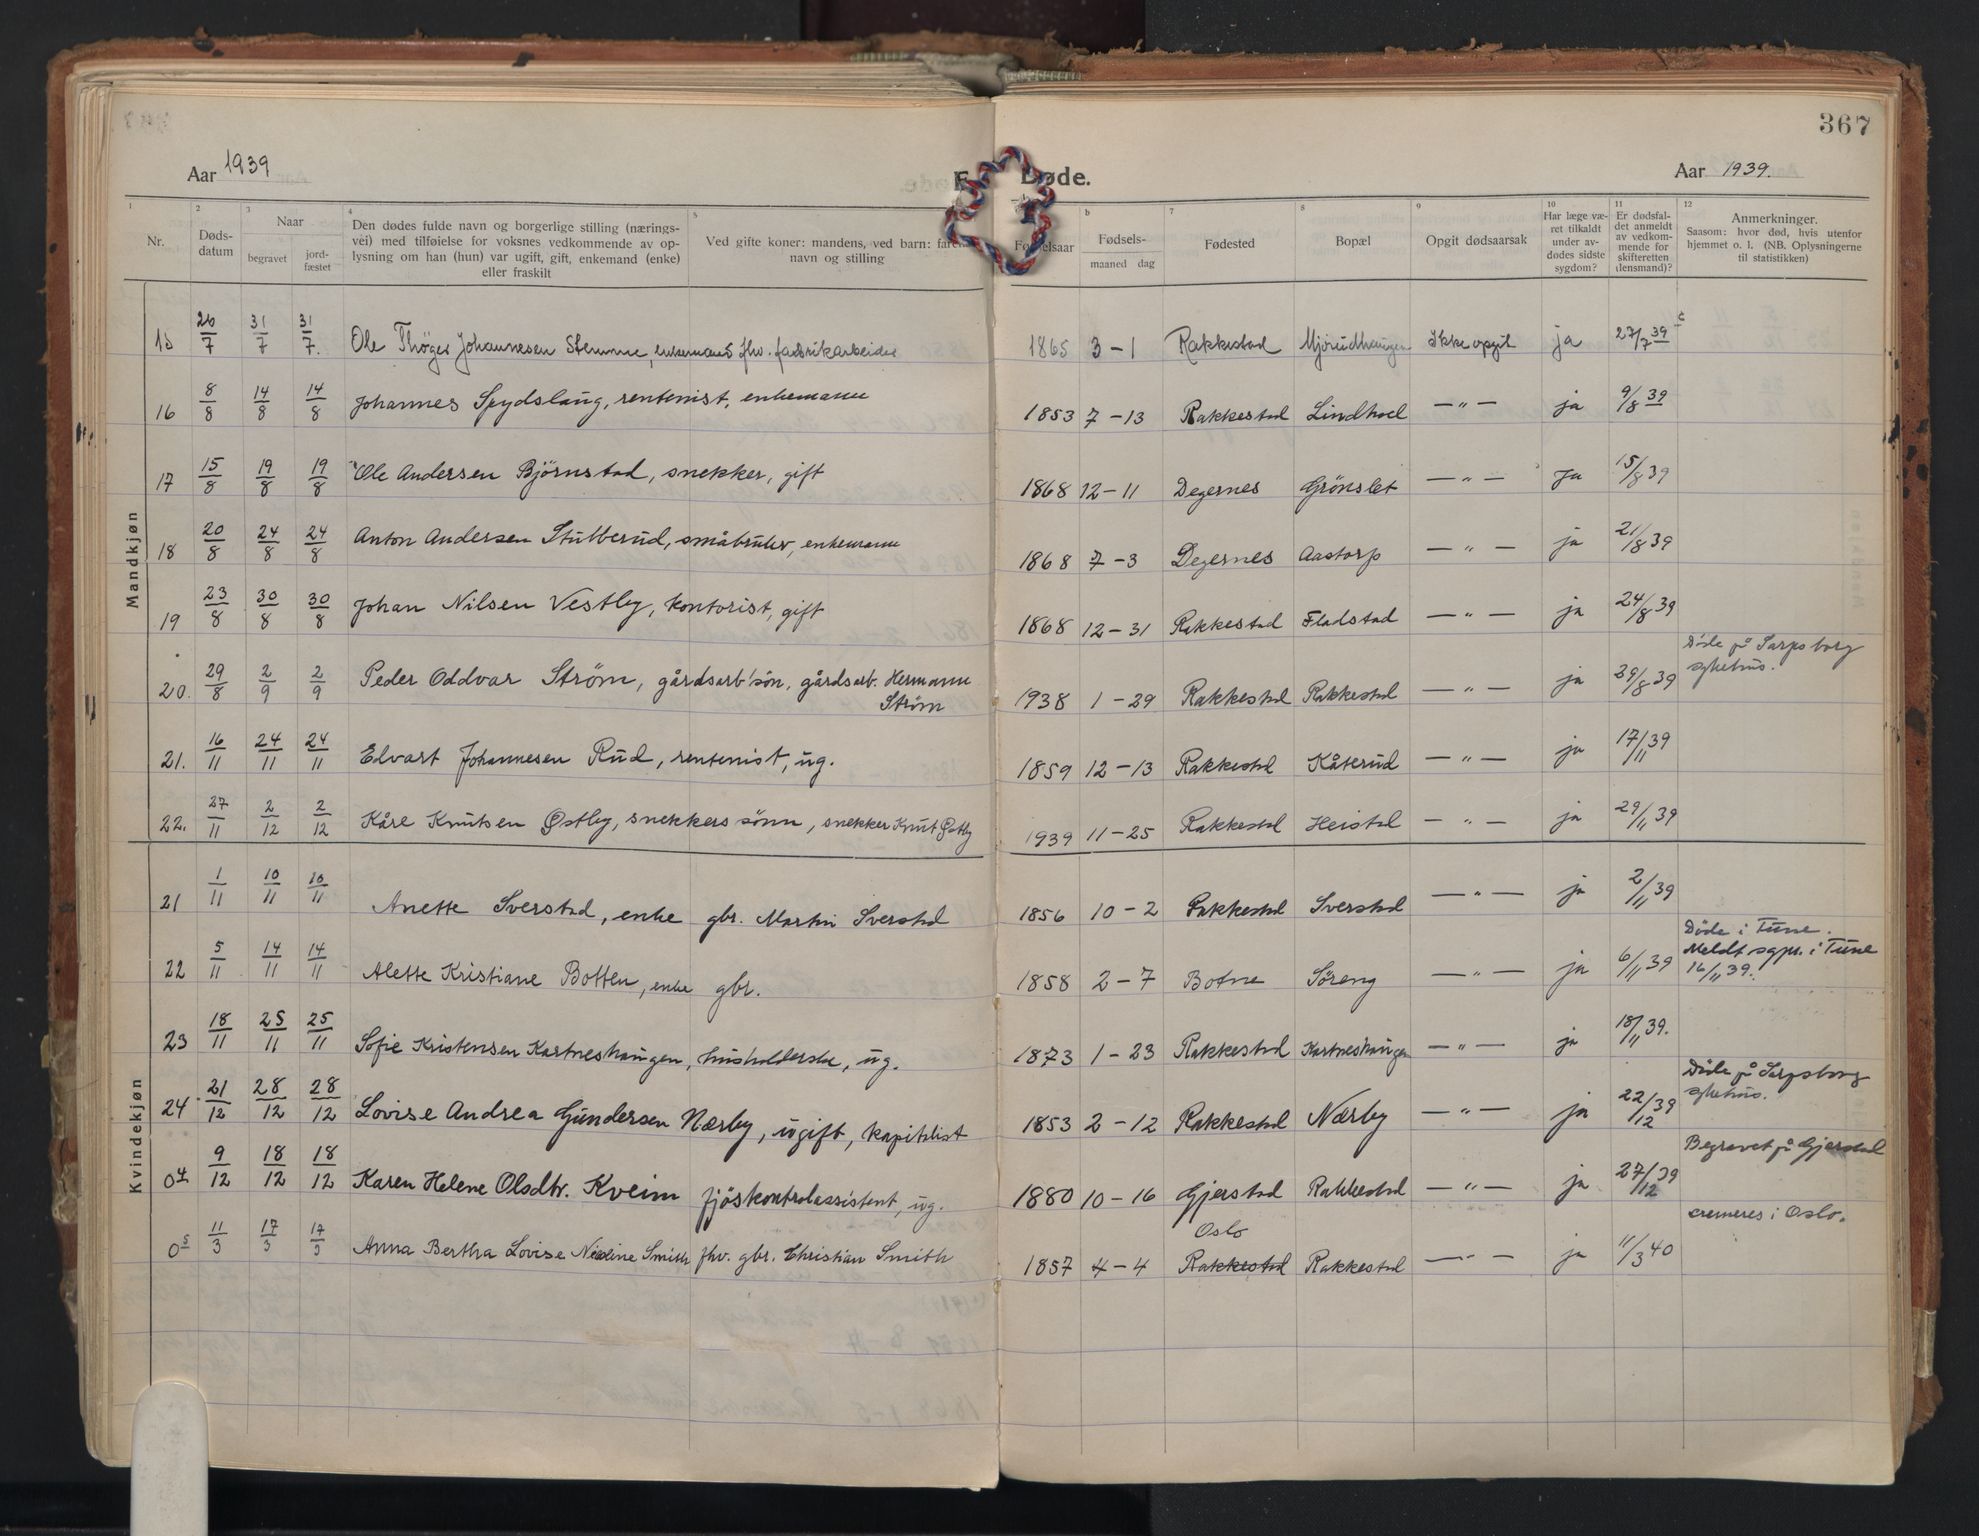 367
Aar 1939
Døde.
Aar 1939.
1 2 3 4 5 6 7 8 9 10 11 12
Nr. Døds-datum Naar begravet jord-fæstet Den dødes fulde navn og borgerlige stilling (nærings-vei) med tilføielse for voksnes vedkommende av op-lysning om han (hun) var ugift, gift, enkemand (enke) eller fraskilt Ved gifte koner: mandens, ved barn: navn og stilling Fødselsaar Fødsels-maaned dag Fødested Bopæl Opgit dødsaarsak Har læge væ-ret tilkaldt under av-dødes sidste sygdom? Er dødsfal-det anmeldt av vedkom-mende for skifteretten (lensmand)? Anmerkninger. Saasom: hvor død, hvis utenfor hjemmet o. l. (NB. Oplysningerne til statistikken)
Mandkjøn
15 26/7 31/7 31/7. Ole Thøger Johannesen Stemme, enkemand fhv. fabrikarbeider 1865 3-1 Rakkestad Mjørudhaugen Ikke opgit ja 27/7 39
16 8/8 14/8 14/8 Johannes Spydslaug, rentenist, enkemann 1853 7-13 Rakkestad Lindhoel — " — ja 9/8 39
17 15/8 19/8 19/8 Ole Andersen Bjørnstad, snekker, gift 1868 12-11 Degernes Grønslet — " — ja 15/8 39
18 20/8 24/8 24/8 Anton Andersen Stubberud, småbruker, enkemann 1868 7-3 Degernes Aastorp — " — ja 21/8 39
19 23/8 30/8 30/8 Johan Nilsen Vestby, kontorist, gift 1868 12-31 Rakkestad Fladstad — " — ja 24/8 39
20. 29/8 2/9 2/9 Peder Oddvar Strøm, gårdsarb' søn, gårdsarb. Hermann Strøm 1938 1-29 Rakkestad Rakkestad — " — ja 29/8 39 Døde på Sarpsborg sykehus.
21. 16/11 24/11 24/11 Edvart Johannesen Rud, rentenist, ug. 1859 12-13 Rakkestad Kåterud — " — ja 17/11 39
22. 27/11 2/12 2/12 Kåre Knutsen Østby, snekkers sønn, snekker Knut Østby 1939 11-25 Rakkestad Heistad — " — ja 29/11 39
Kvindekjøn
21 1/11 10/11 10/11 Anette Sverstad, enke gbr. Martin Sverstad 1856 10-2 Rakkestad Sverstad — " — ja 2/11 39
22 5/11 14/11 14/11 Alette Kristiane Botten, enke gbr. 1858 2-7 Botne Søreng — " — ja 6/11 39 Døde i Tune. Meldt sgpr. i Tune 16/11 39.
23 18/11 25/11 25/11 Sofie Kristensen Kartneshaugen, husholderske, ug. 1873 1-23 Rakkestad Kartneshaugen — " — ja 18/11 39.
24 21/12 28/12 28/12 Lovise Andrea Gundersen Nærby, ugift, kapitalist 1853 2-12 Rakkestad Nærby — " — ja 22/12 39 Døde på Sarpsborg sykehus.
04 9/12 18/12 18/12 Karen Helene Olsdtr. Kveim fjøskontrolassistent, ug. 1880 10-16 Gjerstad Rakkestad — " — ja 27/12 39 Begravet på Gjerstad
05 11/3 17/3 17/3 Anna Bertha Lovise Nicoline Smith fhv. gbr. Christian Smith 1857 4-4 Oslo Rakkestad Rakkestad — " — ja 11/3 40 cremeres i Oslo.